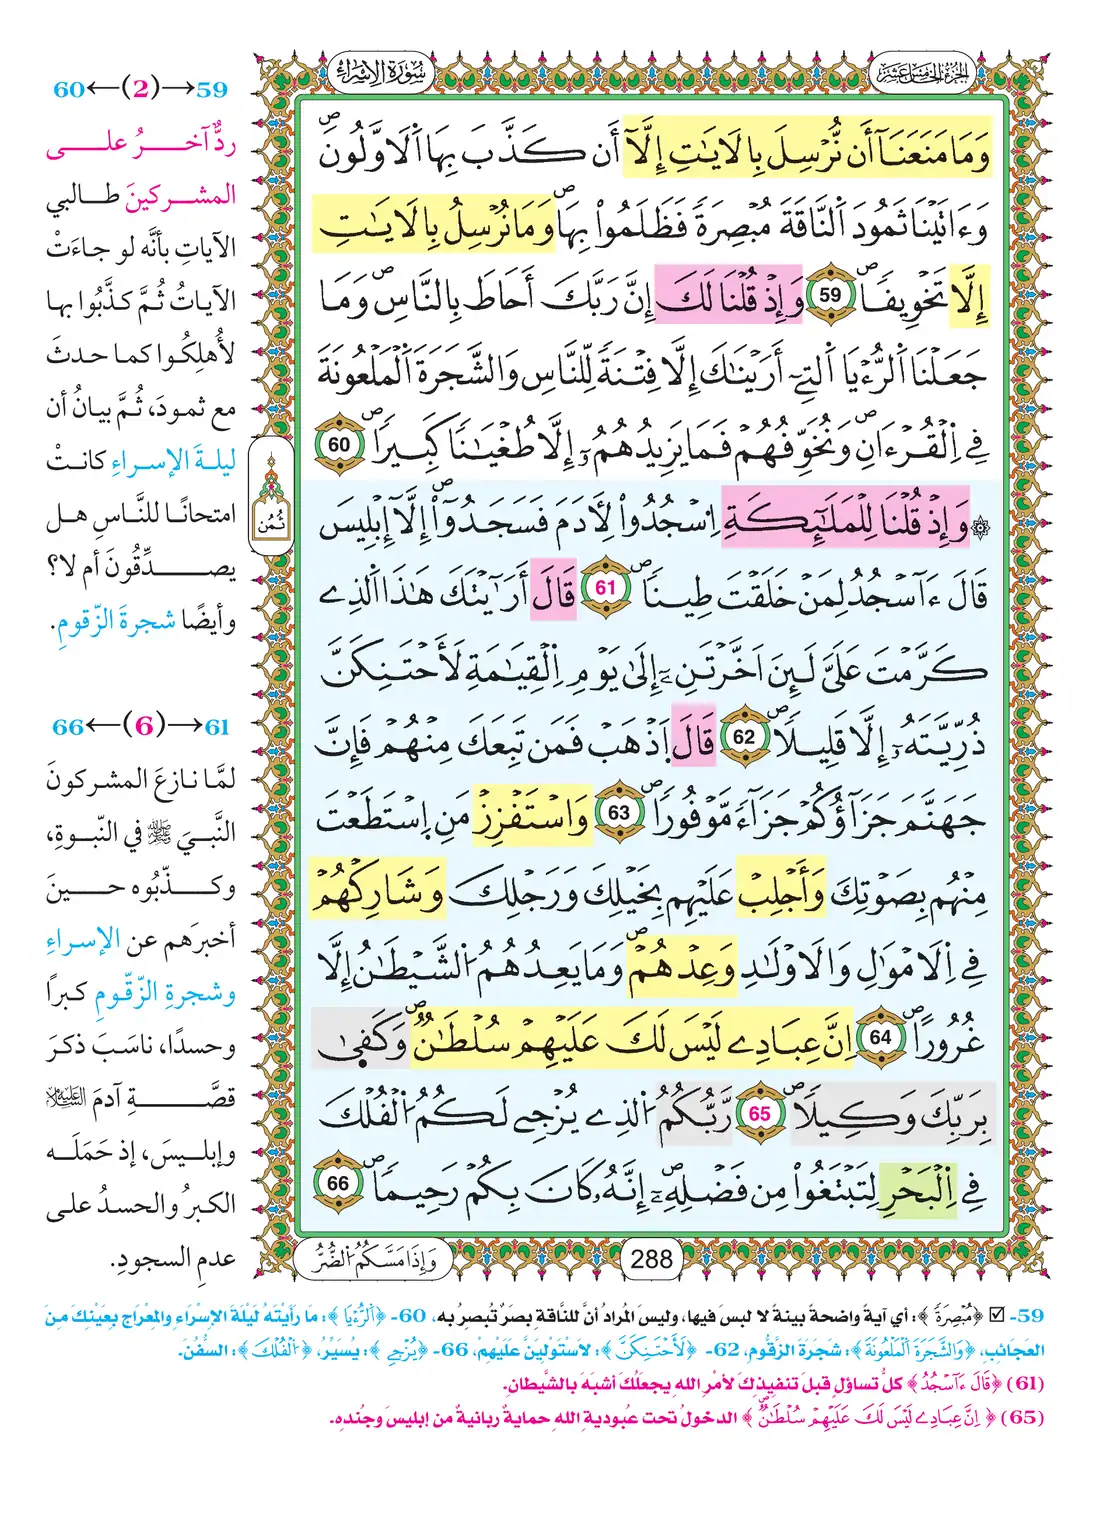 سُورَةُ الإِسْرَاءِ
الجزء الخامس عشر
وَمَا مَنَعَنَآ أَن نُّرْسِلَ بِالَايَٰتِ إِلَّآ أَن كَذَّبَ بِهَا اَلَاوَّلُونَۖ
وَءَاتَيْنَا ثَمُودَ اَلنَّاقَةَ مُبْصِرَةٗ فَظَلَمُواْ بِهَاۖ وَمَا نُرْسِلُ بِالَايَٰتِ
إِلَّا تَخْوِيفٗاۖ 59 وَإِذْ قُلْنَا لَكَ إِنَّ رَبَّكَ أَحَاطَ بِالنَّاسِۖ وَمَا
جَعَلْنَا اَلرُّءْيَا اَلتِےٓ أَرَيْنَٰكَ إِلَّا فِتْنَةٗ لِّلنَّاسِ وَالشَّجَرَةَ اَلْمَلْعُونَةَ
فِے اِلْقُرْءَانِۖ وَنُخَوِّفُهُمْ فَمَا يَزِيدُهُمُۥٓ إِلَّا طُغْيَٰنٗا كَبِيرٗاۖ 60
۞ وَإِذْ قُلْنَا لِلْمَلَٰٓئِكَةِ اِسْجُدُواْ لِأَدَمَ فَسَجَدُوٓاْۖ إِلَّآ إِبْلِيسَ
قَالَ ءَآسْجُدُ لِمَنْ خَلَقْتَ طِينٗاۖ 61 قَالَ أَرَٰٓيْتَكَ هَٰذَا اَلذِے
كَرَّمْتَ عَلَيَّ لَئِنَ اَخَّرْتَنِۦٓ إِلَىٰ يَوْمِ اِلْقِيَٰمَةِ لَأَحْتَنِكَنَّ
ذُرِّيَّتَهُۥٓ إِلَّا قَلِيلٗاۖ 62 قَالَ اَذْهَبْ فَمَن تَبِعَكَ مِنْهُمْ فَإِنَّ
جَهَنَّمَ جَزَآؤُكُمْ جَزَآءٗ مَّوْفُورٗاۖ 63 وَاسْتَفْزِزْ مَنِ اِسْتَطَعْتَ
مِنْهُم بِصَوْتِكَ وَأَجْلِبْ عَلَيْهِم بِخَيْلِكَ وَرَجْلِكَ وَشَارِكْهُمْ
فِے اِلَامْوَٰلِ وَالَاوْلَٰدِ وَعِدْهُمْۖ وَمَا يَعِدُهُمُ اُلشَّيْطَٰنُ إِلَّا
غُرُورٗاۖ 64 اِنَّ عِبَادِے لَيْسَ لَكَ عَلَيْهِمْ سُلْطَٰنٞۖ وَكَفَىٰ
بِرَبِّكَ وَكِيلٗاۖ 65 رَّبُّكُمُ اُلذِے يُزْجِے لَكُمُ اُلْفُلْكَ
فِے اِلْبَحْرِ لِتَبْتَغُواْ مِن فَضْلِهِۦٓۖ إِنَّهُۥ كَانَ بِكُمْ رَحِيمٗاۖ 66
ثُمُن
288
وَإِذَا مَسَّكُمُ اُلضُّرُّ
59→(2)←60
ردٌّ آخرُ على
المشركينَ طالبي
الآياتِ بأنَّه لو جاءَتْ
الآياتُ ثُمَّ كذَّبُوا بها
لأُهلِكُوا كما حدثَ
مع ثمودَ، ثُمَّ بيانُ أن
ليلةَ الإسراءِ كانتْ
امتحانًا للنَّاسِ هل
يصدِّقُونَ أم لا؟
وأيضًا شجرةَ الزّقومِ.
61→(6)←66
لمَّا نازعَ المشركونَ
النَّبيَ ﷺ في النّبوةِ،
وكذّبُوه حينَ
أخبرَهم عن الإسراءِ
وشجرةِ الزّقّومِ كبرًا
وحسدًا، ناسَبَ ذكرَ
قصَّةِ آدمَ عليه السلام
وإبليسَ، إذ حَمَلَه
الكبرُ والحسدُ على
عدمِ السجودِ.
59- ☑ ﴿مُبْصِرَةٗ﴾: أي آيةً واضحةً بينةً لا لبسَ فيها، وليسَ المُرادُ أنَّ للنَّاقةِ بصرٌ تُبصِرُ به، 60- ﴿اَلرُّءْيَا﴾: ما رأيْتَهُ لَيْلَةَ الإسْرَاءِ والمِعْراجِ بعَيْنكَ منَ
العَجائبِ، ﴿وَالشَّجَرَةَ اَلْمَلْعُونَةَ﴾: شجَرَةَ الزَّقُّومِ، 62- ﴿لَأَحْتَنِكَنَّ﴾: لأسْتَوْلِيَنَّ عليْهِمْ، 66- ﴿يُزْجِے﴾: يُسيِّرُ، ﴿اُلْفُلْكَ﴾: السُّفُنَ.
(61) ﴿قَالَ ءَآسْجُدُ﴾ كلُّ تساؤلٍ قبلَ تنفيذِكَ لأمْرِ اللهِ يجعلُكَ أشبَهَ بالشَّيطانِ.
(65) ﴿اِنَّ عِبَادِے لَيْسَ لَكَ عَلَيْهِمْ سُلْطَٰنٞۖ﴾ الدخولُ تحتَ عبوديةِ اللهِ حمايةٌ ربانيةٌ من إبليسَ وجُندِه.